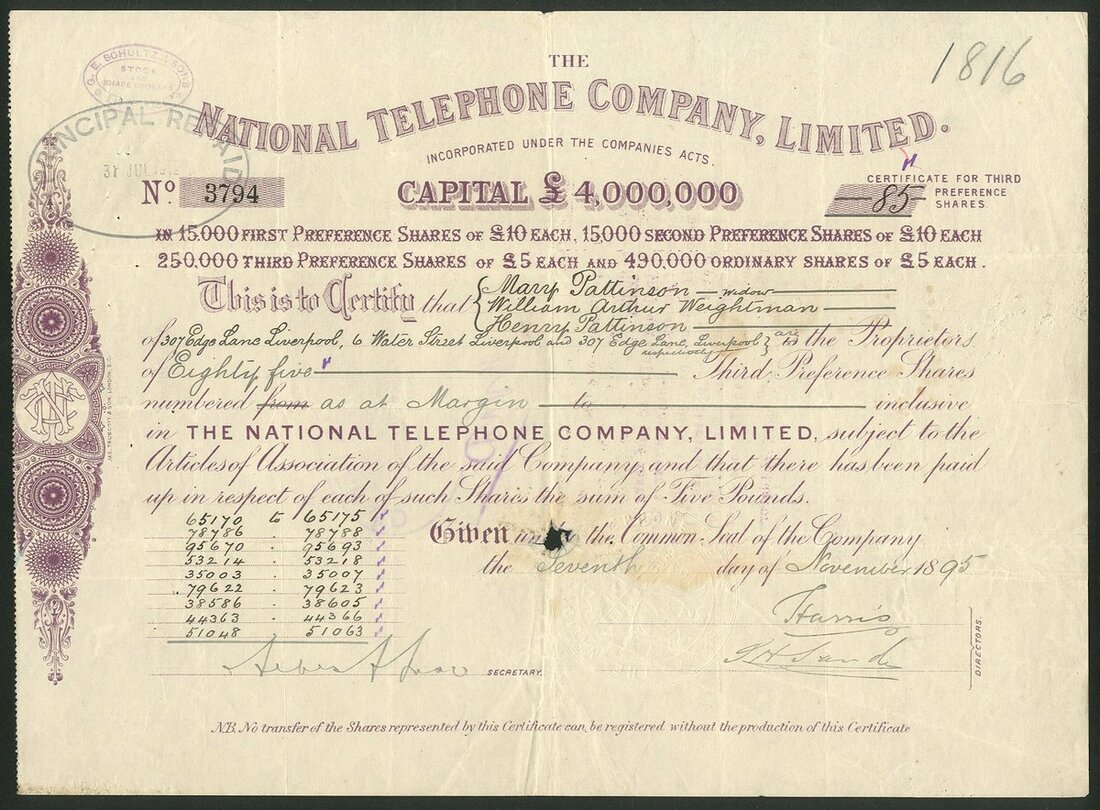 G. E. SCHULTZ & SONS
STOCK
AND
SHARE BROKERS
1816
THE
NATIONAL TELEPHONE COMPANY, LIMITED.
INCORPORATED UNDER THE COMPANIES ACTS.
PRINCIPAL REPAID
31 JUL 1912
No 3794
CAPITAL £ 4,000,000
CERTIFICATE FOR THIRD
85 PREFERENCE
SHARES
IN 15,000 FIRST PREFERENCE SHARES OF £10 EACH, 15,000 SECOND PREFERENCE SHARES OF £10 EACH
250,000 THIRD PREFERENCE SHARES OF £5 EACH AND 490,000 ORDINARY SHARES OF £5 EACH.
This is to Certify that { Mary Pattinson widow
William Arthur Weightman
Henry Pattinson
of 307 Edge Lane Liverpool, 6 Water Street Liverpool and 307 Edge Lane, Liverpool } are is the Proprietors
respectively
of Eighty five Third Preference Shares
numbered from as at Margin to inclusive
in THE NATIONAL TELEPHONE COMPANY, LIMITED, subject to the
Articles of Association of the said Company, and that there has been paid
up in respect of each of such Shares the sum of Five Pounds.
65170 to 65175
78786 . 78788
95670 . 95693
53214 . 53218
35003 . 35007
79622 . 79623
38586 . 38605
44363 . 44366
51048 . 51063
Given the Common Seal of the Company
the Seventh day of November 1895
Harris
SECRETARY.
DIRECTORS.
N.B. No transfer of the Shares represented by this Certificate can be registered without the production of this Certificate